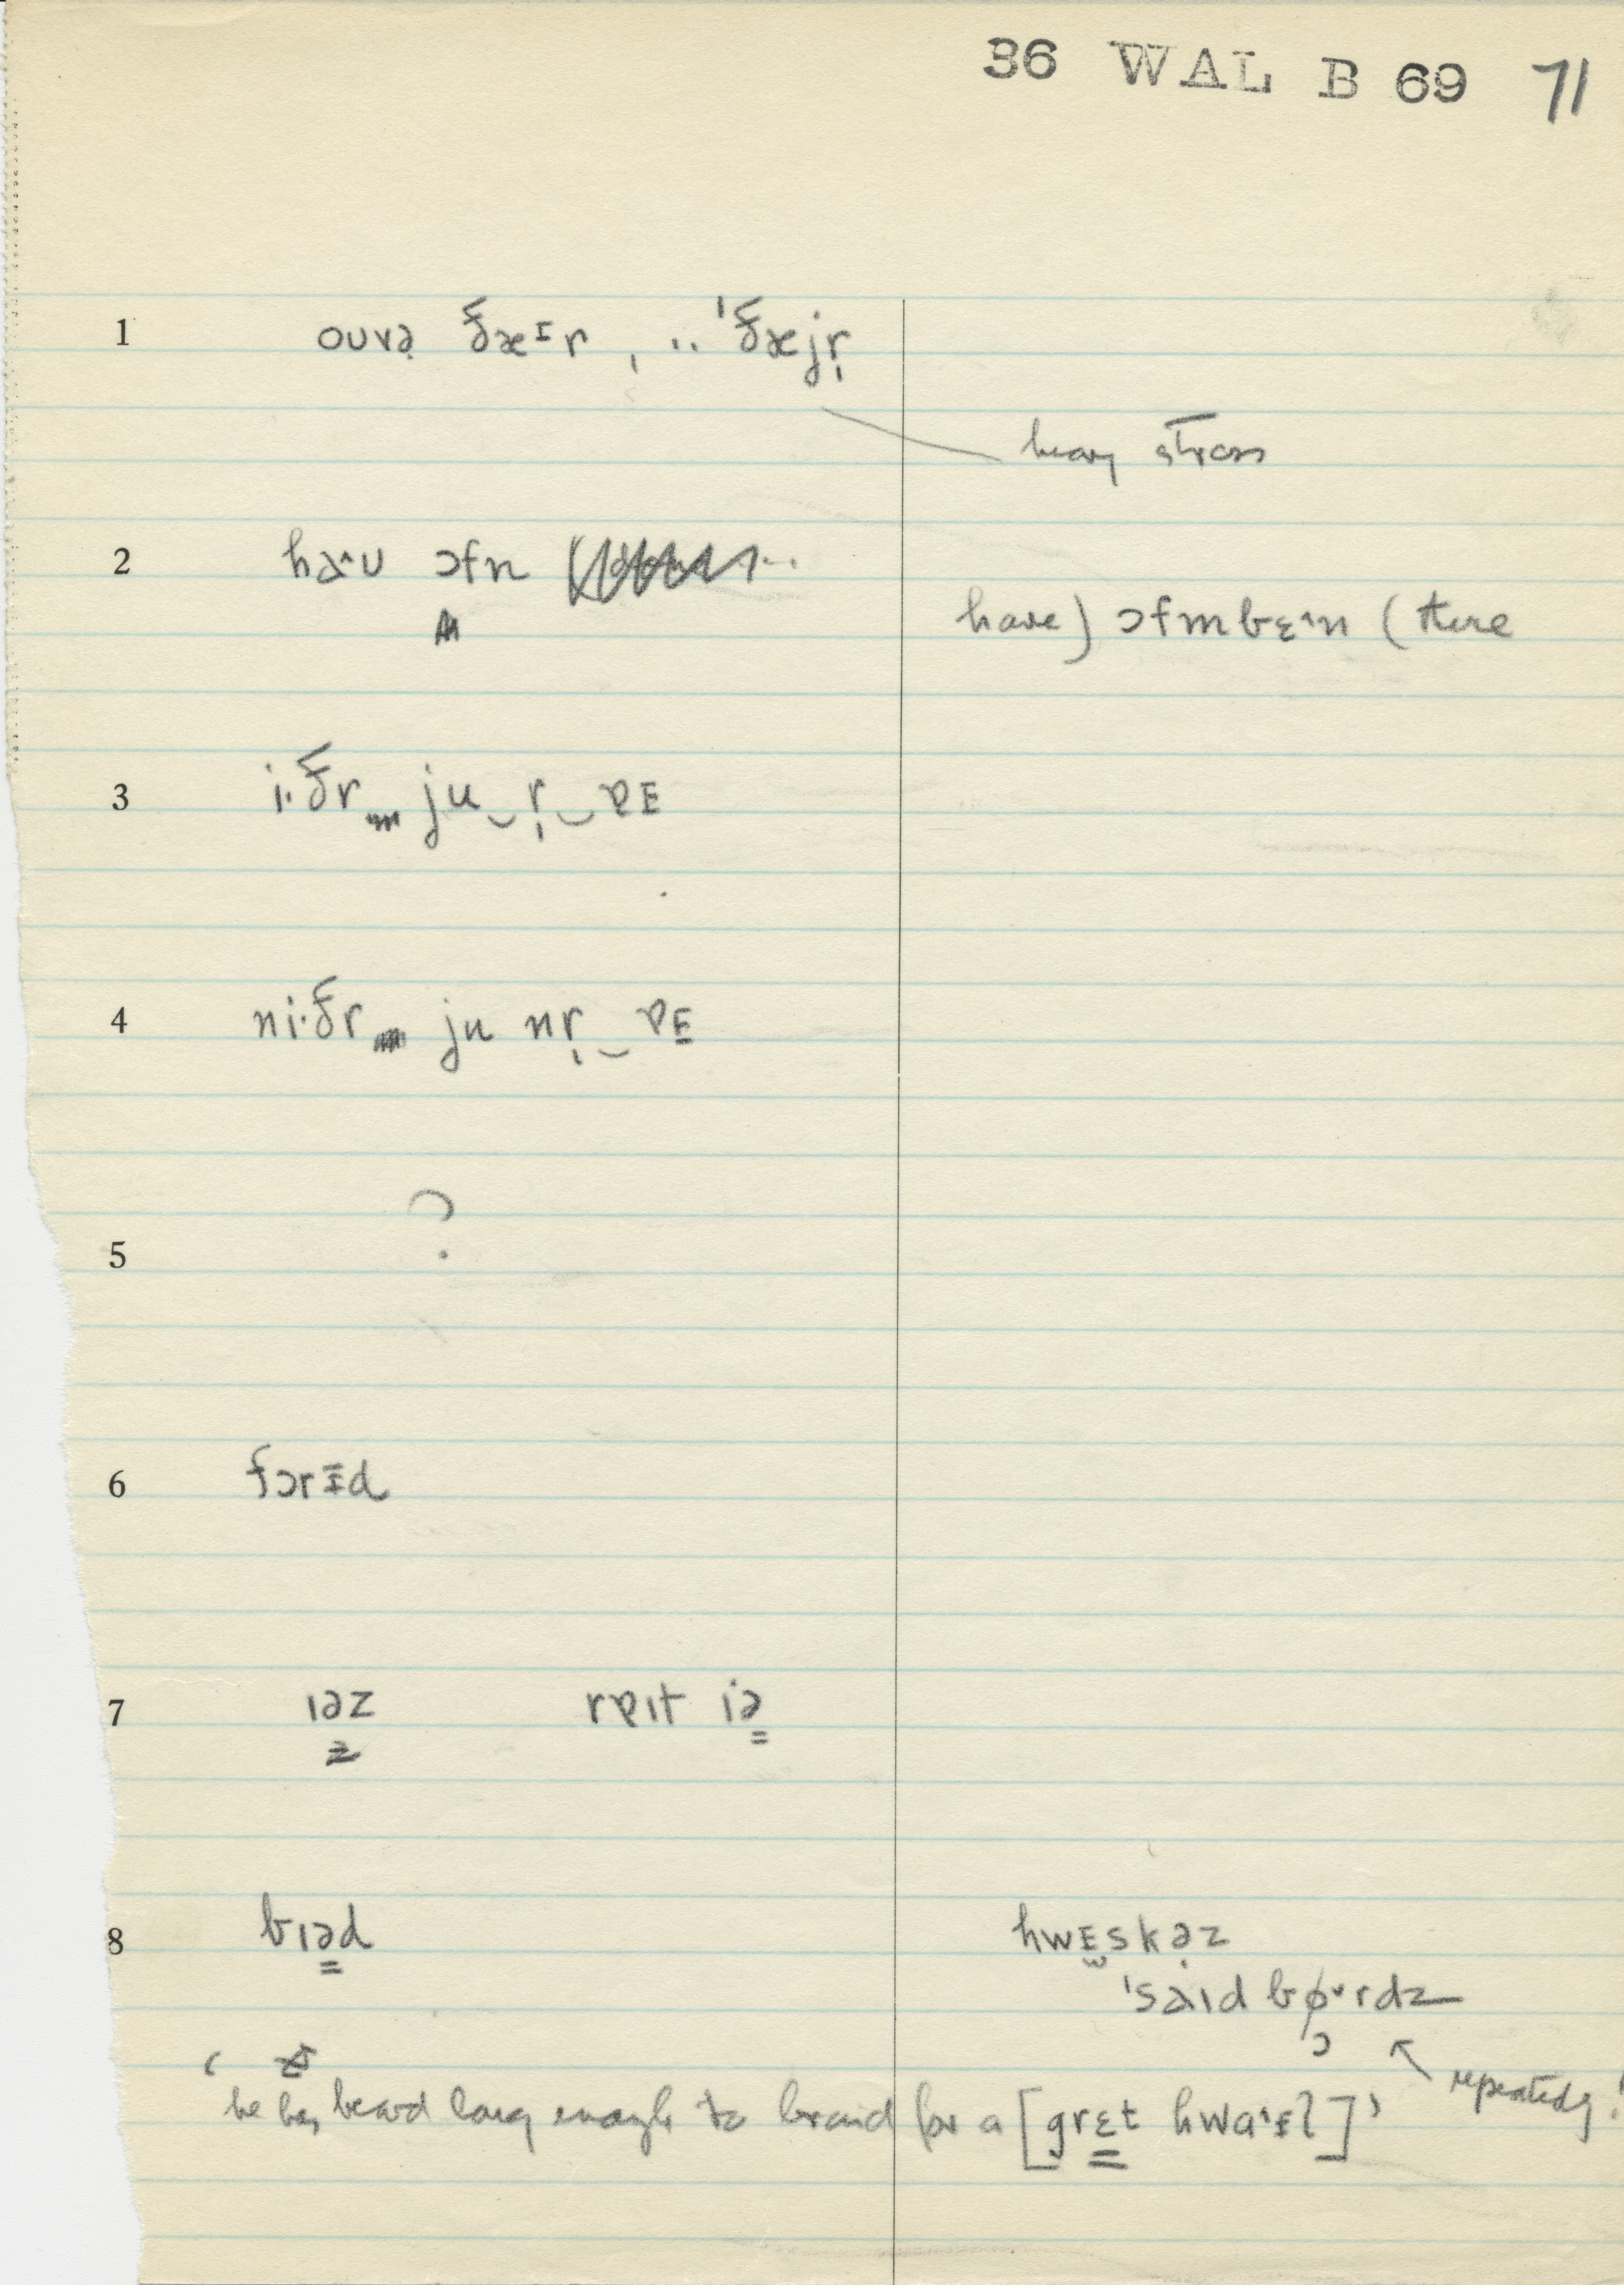 36 WAL B 69 71
1 ouvə̣ ðæɪr̩, .. 'ðæjr̩
heavy stress
2 ha˄ʊ ɔfn
have) ɔfmbɛ˄n (there
3 i·ðr ju‿r̩‿ɐᴇ
4 ni·ðr ju nr̩‿ɐᴇ
5 ?
6 fɔrɪ̵d
7 ɪəz rɐɪt iə
8 bɪəd hwᴇskəz
'saɪd bɔ˅rdz
repeatedly!
'he has beard long enough to braid for a [grɛt hwaˑɪl]'